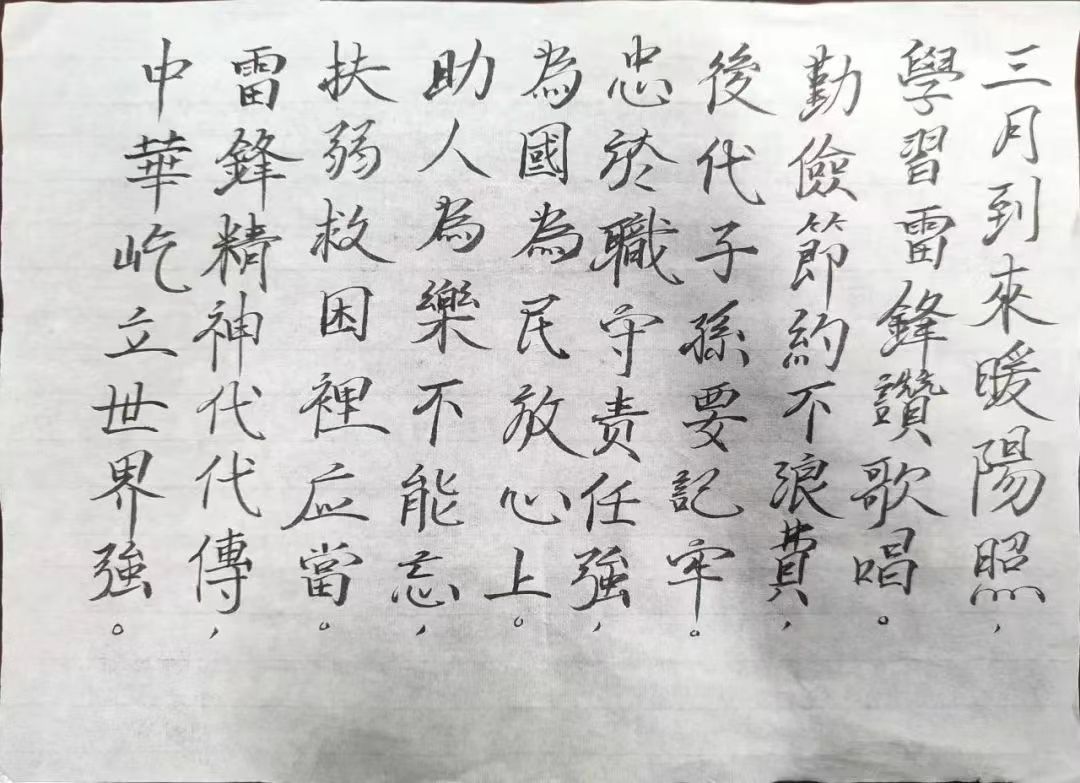 三月到來暖陽照，
學習雷鋒讚歌唱。
勤儉節約不浪費，
後代子孫要記牢。
忠於職守责任強，
為國為民放心上。
助人為樂不能忘，
扶弱救困裡应當。
雷鋒精神代代傳，
中華屹立世界強。